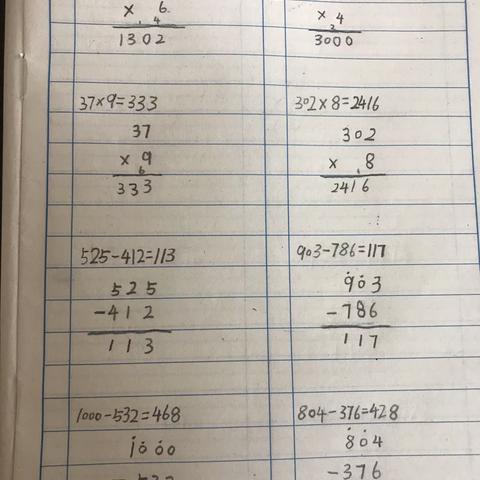 × 6
4
1302
× 4
2
3000
37×9=333
37
× 9
6
333
302×8=2416
302
× 8
1
2416
525-412=113
525
-412
113
903-786=117
903
-786
117
1000-532=468
1000
804-376=428
804
-376